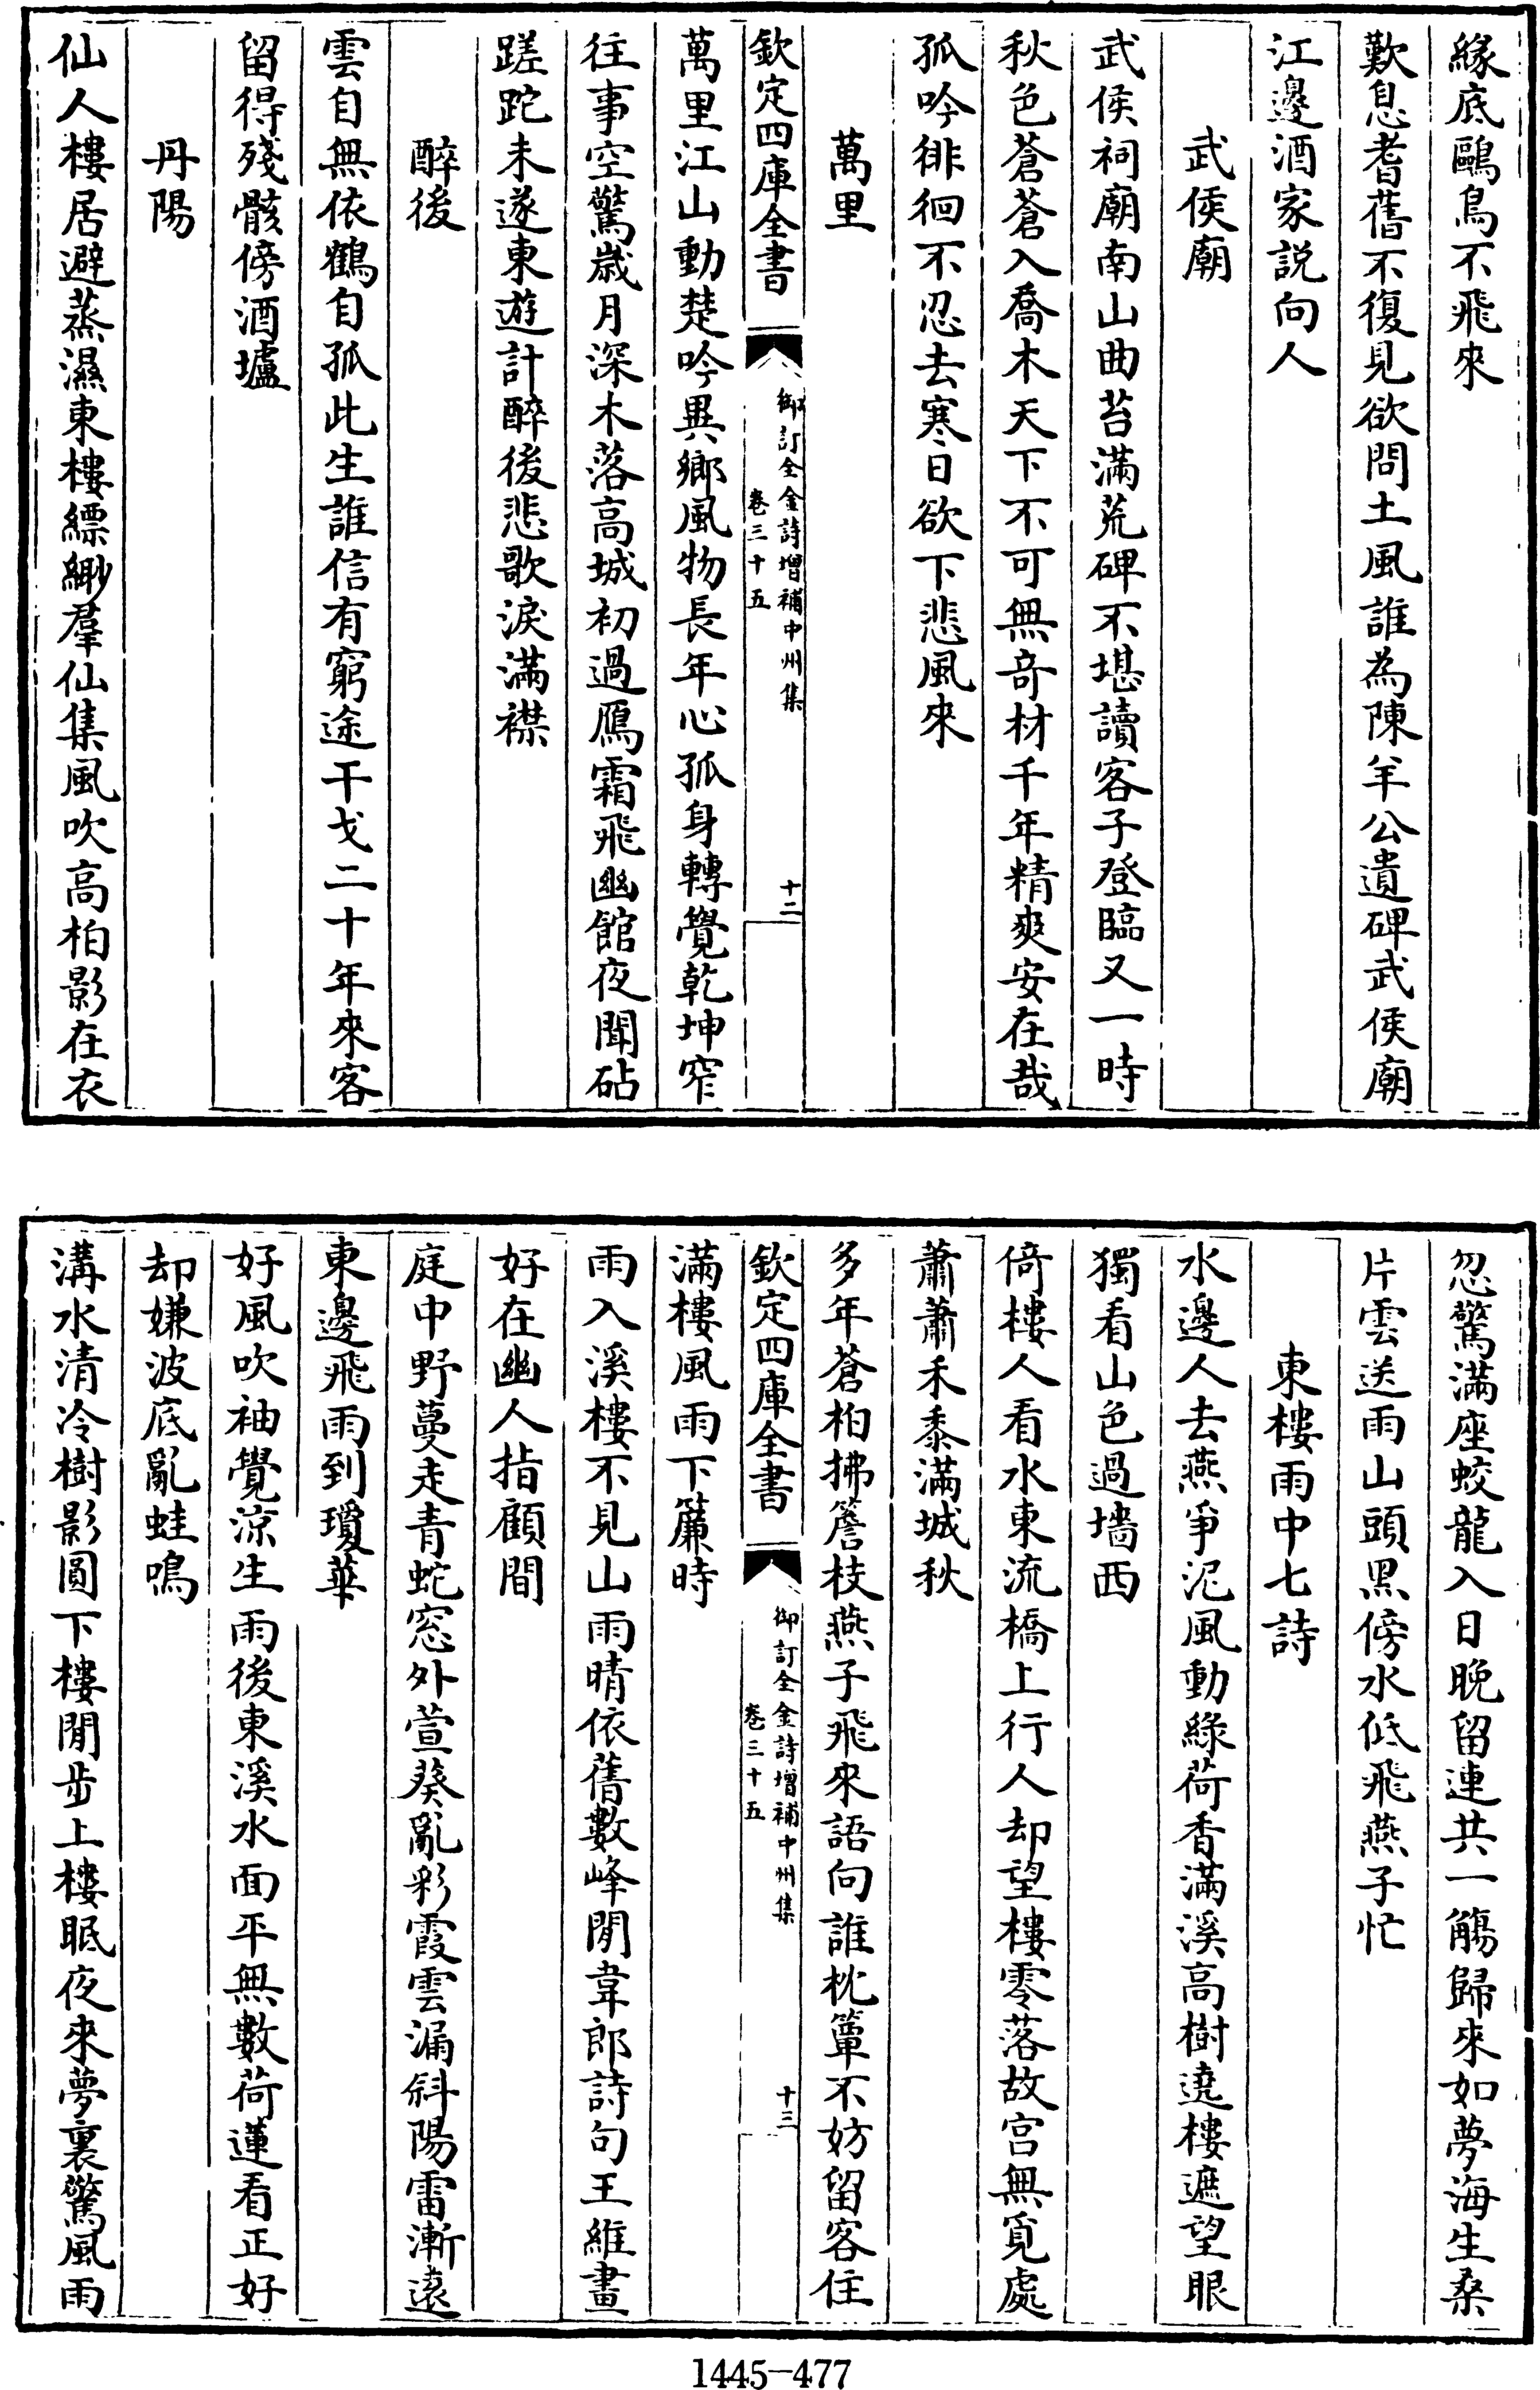 緣底鷗鳥不飛來
歎息耆舊不復見欲問土風誰為陳羊公遺碑武侯廟
江邊酒家説向人
武侯廟
武侯祠廟南山曲苔滿荒碑不堪讀客子登臨又一時
秋色蒼蒼入喬木天下不可無奇材千年精爽安在哉
孤吟徘徊不忍去寒日欲下悲風來
萬里
欽定四庫全書
御訂全金詩增補中州集
卷三十五
十二
萬里江山動楚吟異鄉風物長年心孤身轉覺乾坤窄
往事空驚歲月深木落高城初過鴈霜飛幽館夜聞砧
蹉跎未遂東遊計醉後悲歌淚滿襟
醉後
雲自無依鶴自孤此生誰信有窮途干戈二十年來客
留得殘骸傍酒壚
丹陽
仙人樓居避蒸濕東樓縹緲羣仙集風吹高柏影在衣
忽驚滿座蛟龍入日晚留連共一觴歸來如夢海生桑
片雲送雨山頭黑傍水低飛燕子忙
東樓雨中七詩
水邊人去燕爭泥風動綠荷香滿溪高樹遶樓遮望眼
獨看山色過墻西
倚樓人看水東流橋上行人却望樓零落故宫無覓處
蕭蕭禾黍滿城秋
多年蒼柏拂簷枝燕子飛來語向誰枕簟不妨留客住
欽定四庫全書
御訂全金詩增補中州集
卷三十五
十三
滿樓風雨下簾時
雨入溪樓不見山雨晴依舊數峰閒韋郎詩句王維畫
好在幽人指顧間
庭中野蔓走青蛇窓外萱葵亂彩霞雲漏斜陽雷漸遠
東邊飛雨到瓊華
好風吹袖覺涼生雨後東溪水面平無數荷蓮看正好
却嫌波底亂蛙鳴
溝水清泠樹影圓下樓閒步上樓眠夜來夢裏驚風雨
1445-477